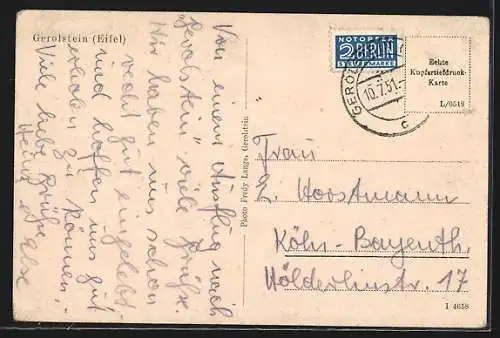 Gerolstein (Eifel)
Von einem Ausflug nach
"Gerolstein" viele Grüße.
Wir haben uns schon
recht gut eingelebt
und hoffen uns gut
erholen zu können.
Viele liebe Grüße
Heinz & Else
Photo Fredy Lange, Gerolstein
NOTOPFER
2 BERLIN
STEUERMARKE
GEROLS
10.7.51.-
c
Echte
Kupfertiefdruck-
Karte
L/0518
Frau
L. Horstmann
Köln-Bayenth.
Hölderlinstr. 17
I 4658